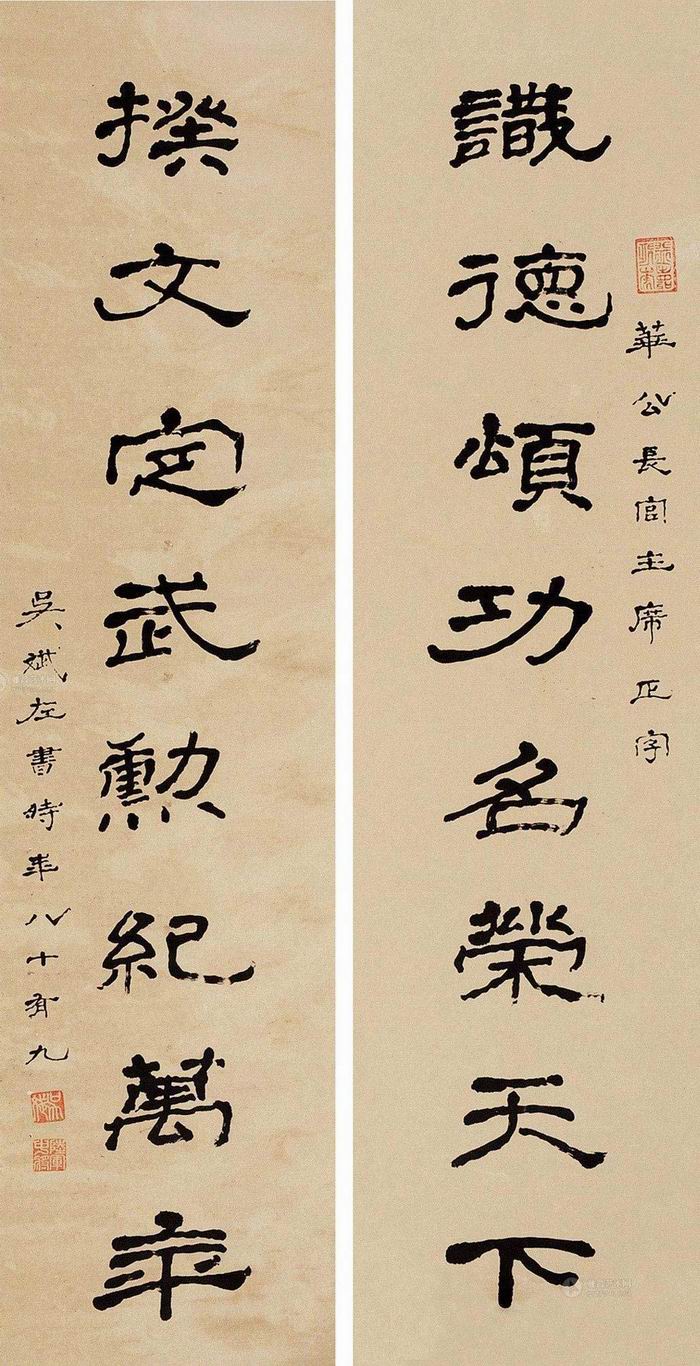 華公長官主席正字
識德頌功名榮天下
撰文定武勲紀萬年
吳斌左書時年八十有九